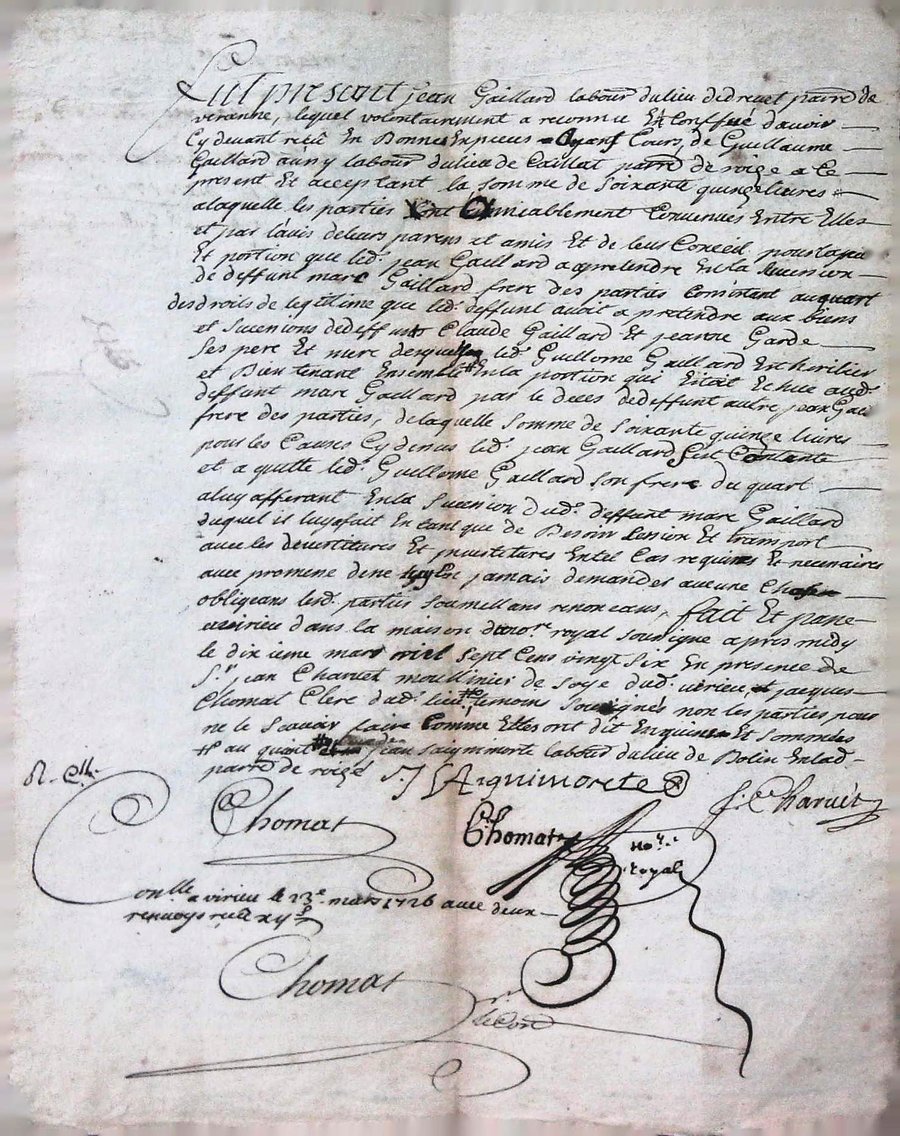 Fut present jean Gaillard labour dulieu dedrevet parre de
veranne, lequel volontairement a reconnu Et Confessé davoir
Cy devant reçû En Bonnes Especes Ayant Cours, de Guillaume
Gaillard aussy labour dulieu de Caillat parre de roizé a ce
present Et acceptant la somme de Soixante quinze livres
alaquelle les parties sont amiablement Convenues Entre Elles
et par lavis deleurs parens et amis Et de leur Conseil pour la part
Et portion que led. jean Gaillard a apretendre En la succession
de deffunt marc Gaillard frere des parties Consistant au quart
des droits de legitime que led. deffunt avoit a pretendre aux biens
et successions dedeffunts Claude Gaillard Et jeanne Garde
ses pere Et mere desquels led. Guillome Gaillard Est heritier
et Bien tenant Ensemble En la portion qui Etoit Echue aud.
deffunt marc Gaillard par le deces dedeffunt autre jean Gail
frere des parties, delaquelle somme de Soixante quinze livres
pour les Causes Cy dessus led. jean Gaillard sest Contenté
et a quitté led. Guillome Gaillard son frere du quart
aluy afferant En la Succession dud. deffunt marc Gaillard
duquel il luy a fait En tant que de Besoin Cession Et transport
avec les devestitures Et investitures Entel Cas requises Et necessaires
avec promesse de ne luy En jamais demander aucune Chose
obligeans lesd. parties soumettans renonceans, fait Et passé
a virieu dans la maison du no.re royal Soussigné apres midy
le dixieme mars mil Sept Cens vingt six En presence de
S.r jean Charuet moullinier de Soye dud. virieu et jacques
Chomat Clerc dud. lieu temoins Soussignes non les parties pour
ne le Scavoir faire Comme Elles ont dit Enquises Et sommées
# au quart # jean Saignimorte labour dulieu de Bolin En lad.
parre de roizé
S. J Sagnimorete
J. Charuet
Chomat
Chomat
no.re
royal
Con.lle a virieu le 23.e mars 1726 avec deux
renvoys reçû xy s
Chomat